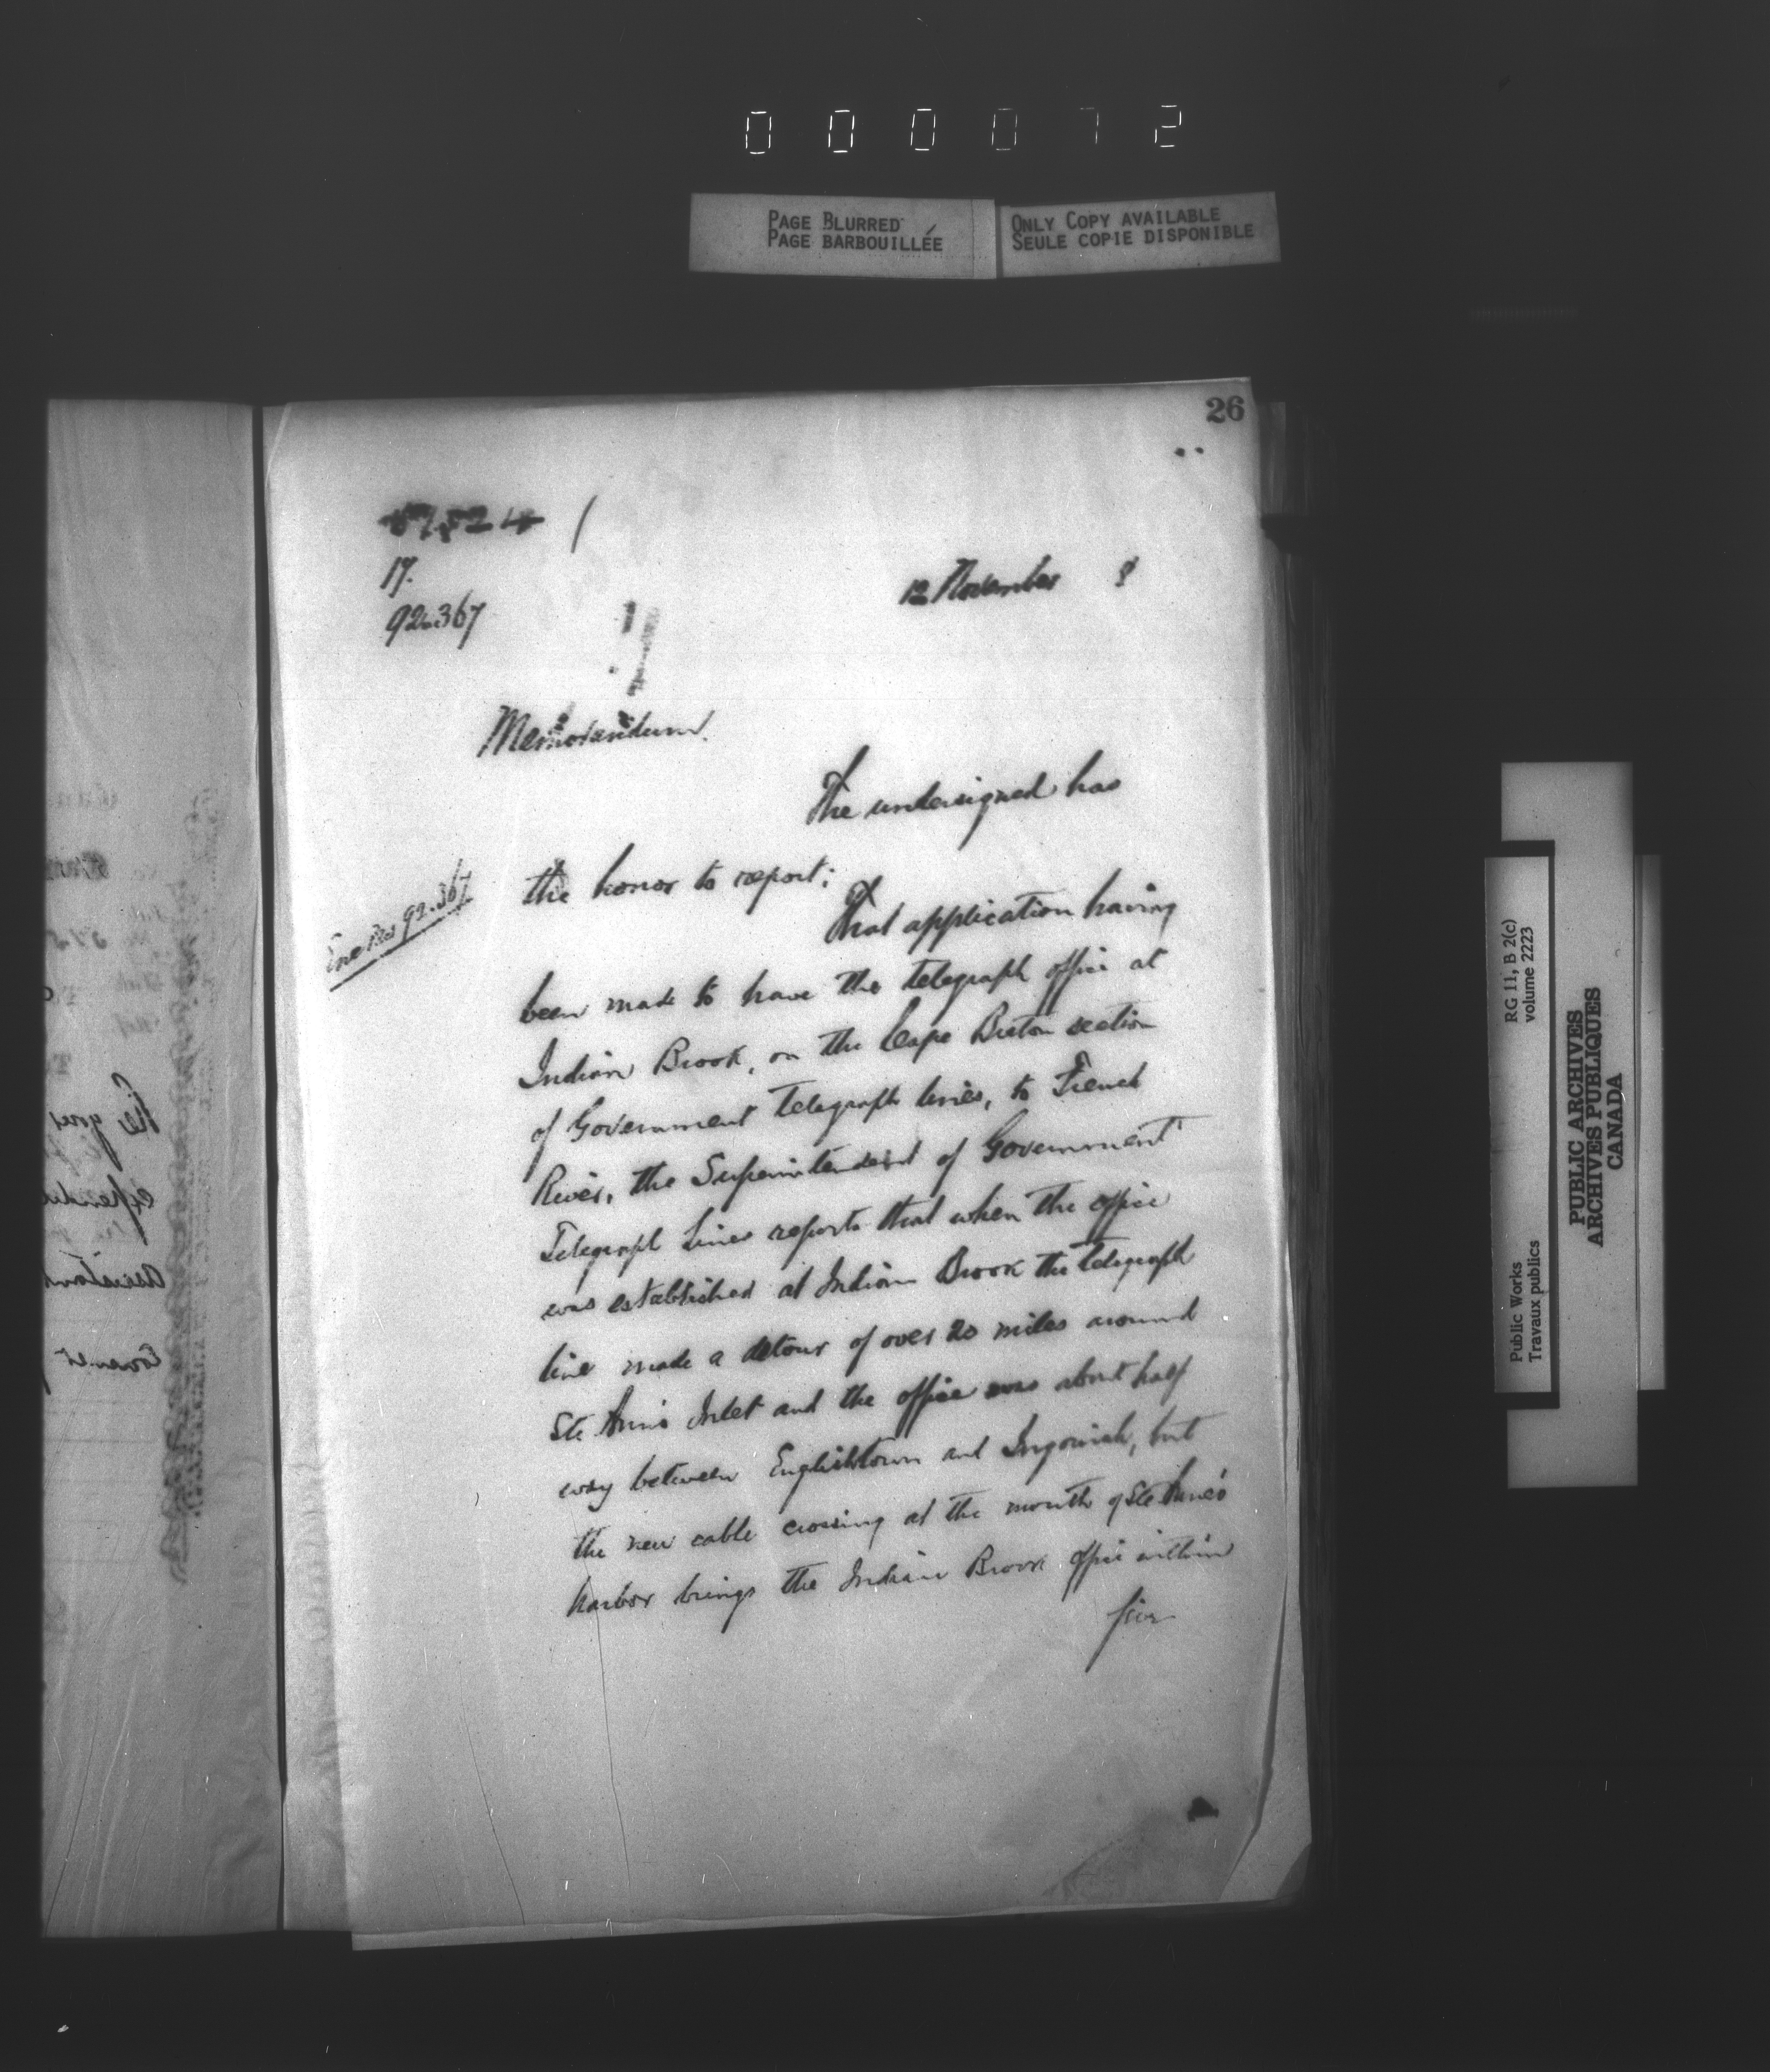 000072
PAGE BLURRED
PAGE BARBOUILLÉE
ONLY COPY AVAILABLE
SEULE COPIE DISPONIBLE
26
17.
92.367
12 November 8
Memorandum.
The undersigned has
the honor to report:
92.367
That application having
been made to have the telegraph office at
Indian Brook, on the Cape Breton section
of Government telegraph lines, to French
River, the Superintendent of Government
Telegraph Lines reports that when the office
was established at Indian Brook the telegraph
line made a detour of over 20 miles around
Ste Ann's Inlet and the office was about half
way between Englishtown and Ingonish, but
the new cable crossing at the mouth of Ste Anne's
harbor brings the Indian Brook office within
five
RG 11, B 2(c)
volume 2223
Public Works
Travaux publics
PUBLIC ARCHIVES
ARCHIVES PUBLIQUES
CANADA